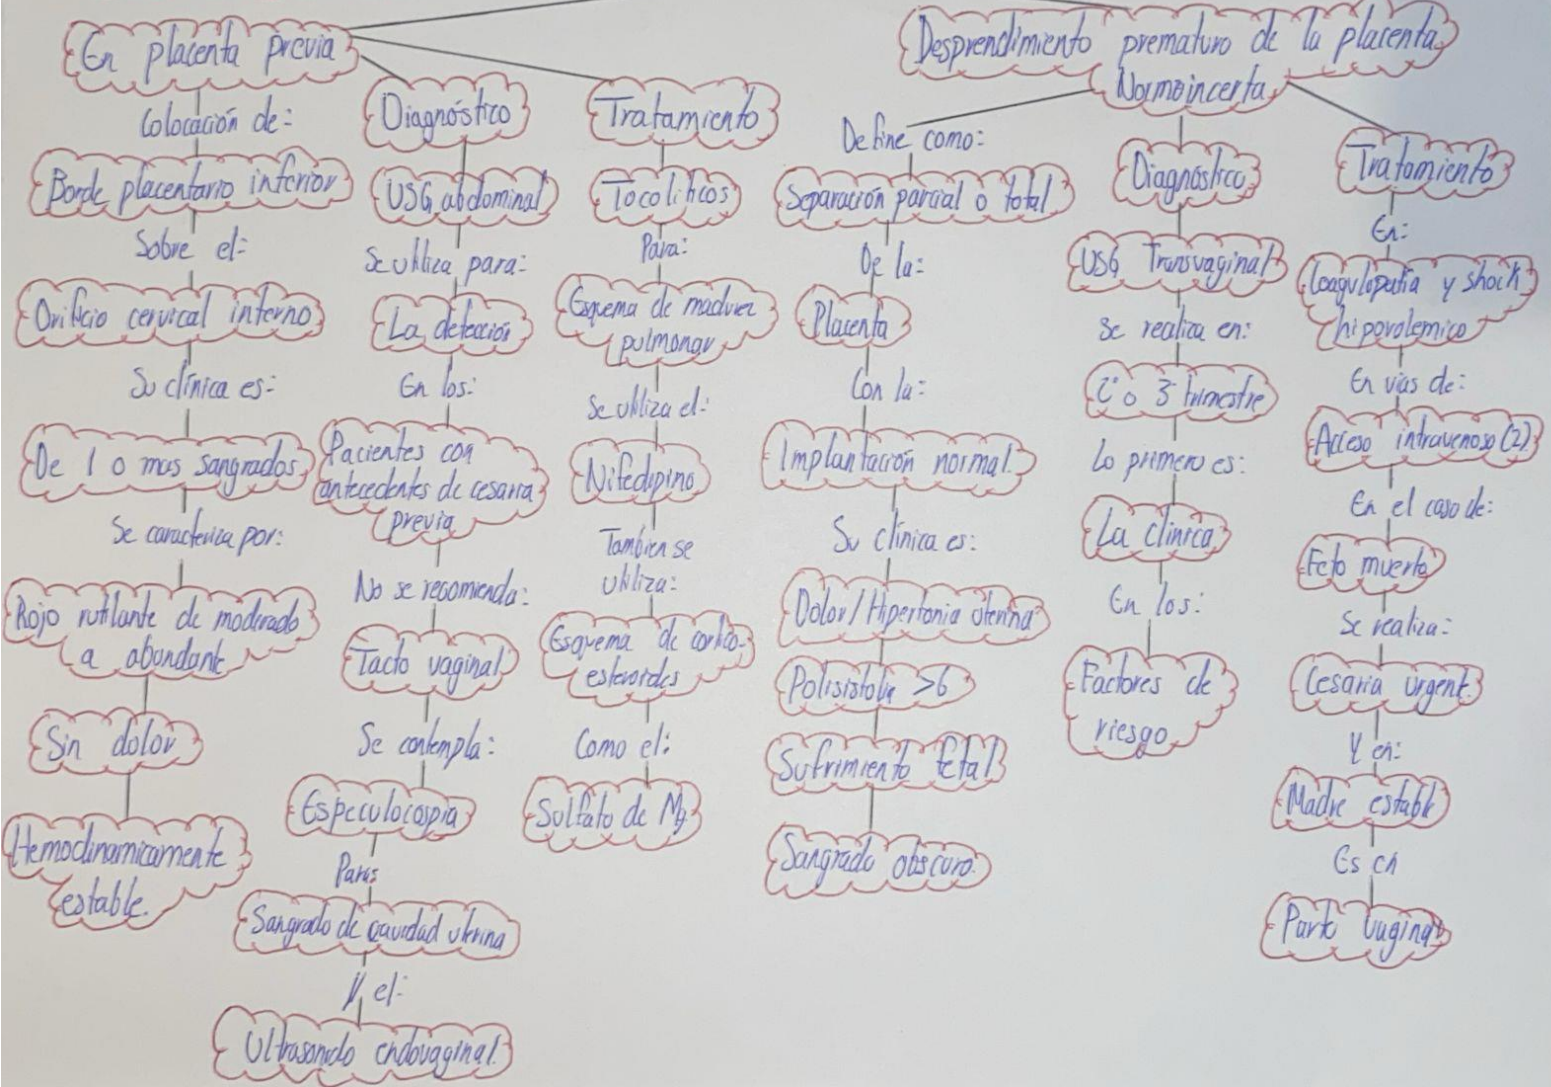 En placenta previa
Colocación de:
Borde placentario inferior
Sobre el:
Orificio cervical interno
Su clínica es:
De 1 o mas sangrados
Se caracteriza por:
Rojo rutilante de moderado
a abundante
Sin dolor
Hemodinamicamente
estable.
Diagnóstico
USG abdominal
Se utiliza para:
La detección
En los:
Pacientes con
antecedentes de cesarea
previa
No se recomienda:
Tacto vaginal
Se contempla:
Especulocospia
Para:
Sangrado de cavidad uterina
Y el:
Ultrasonido endovaginal.
Tratamiento
Tocoliticos
Para:
Esquema de madurez
pulmonar
Se utiliza el:
Nifedipino
Tambien se
utiliza:
Esquema de cortico-
esteroides
Como el:
Sulfato de Mg
Desprendimiento prematuro de la placenta
Normoincerta
Define como:
Separación parcial o total
De la:
Placenta
Con la:
Implantación normal.
Su clínica es:
Dolor/Hipertonia uterina
Polisistolia >6
Sufrimiento fetal
Sangrado obscuro.
Diagnóstico
USG Transvaginal
Se realiza en:
2° o 3° trimestre
Lo primero es:
La clínica
En los:
Factores de
riesgo
Tratamiento
En:
Coagulopatia y shock
hipovolemico
En vias de:
Acceso intravenoso (2)
En el caso de:
Feto muerto
Se realiza:
Cesaria urgent.
Y en:
Madre estable
Es en
Parto vaginal